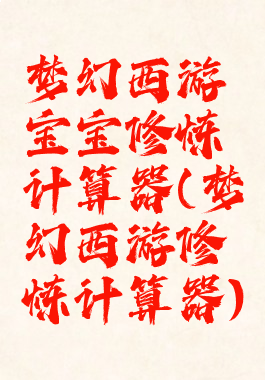 梦幻西游
宝宝修炼
计算器(梦
幻西游修
炼计算器)